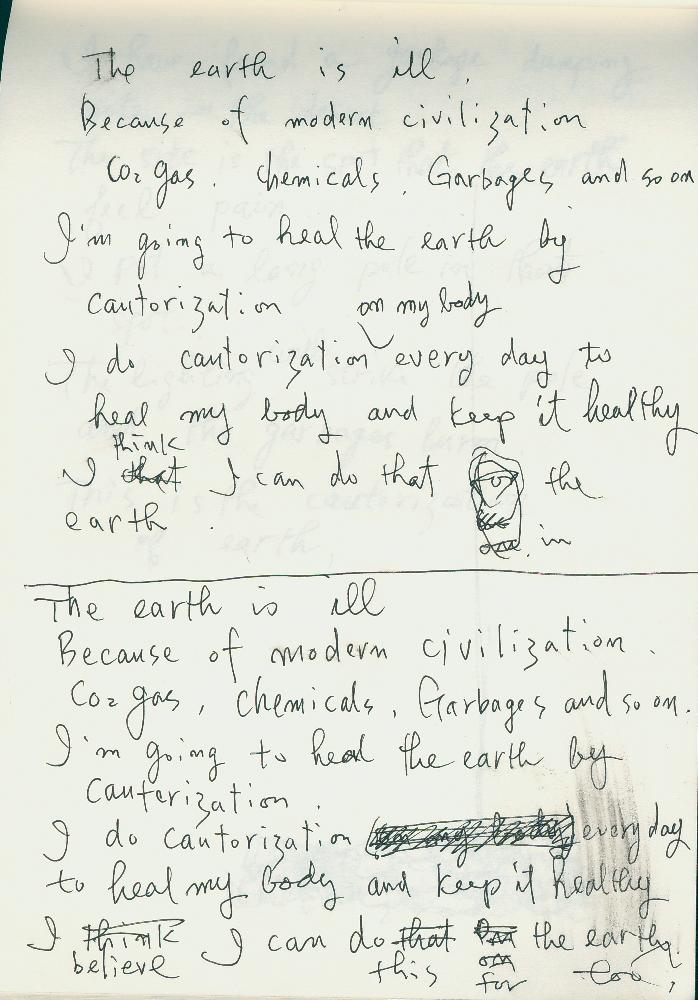 The earth is ill.
Because of modern civilization
Co2 gas. chemicals. Garbages and so on
I'm going to heal the earth by
cautorization on my body
I do cautorization every day to
heal my body and keep it healthy
think
I that I can do that for the
earth. on in
The earth is ill
Because of modern civilization.
Co2 gas, chemicals, Garbages and so on.
I'm going to heal the earth by
Cauterization.
I do cautorization every day
to heal my body and keep it healthy
I think I can do that the earth.
believe this on for too,